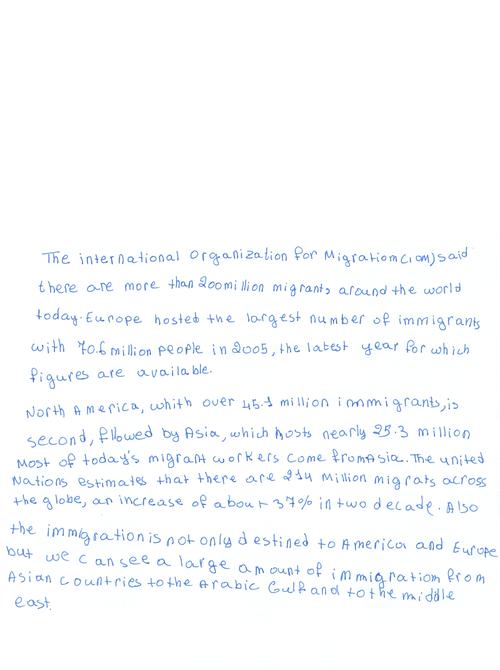 The international Organization for Migration (IOM) said
there are more than 200 million migrants around the world
today. Europe hosted the largest number of immigrants
with 70.6 million people in 2005, the latest year for which
figures are available.
North America, whith over 45.1 million immigrants, is
second, fllowed by Asia, which hosts nearly 25.3 million
Most of today's migrant workers come from Asia. The united
Nations estimates that there are 214 Million migrats across
the globe, an increase of about 37% in two decade. Also
the immigration is not only destined to America and Europe
but we can see a large amount of immigration from
Asian countries to the Arabic Gulf and to the middle
east.